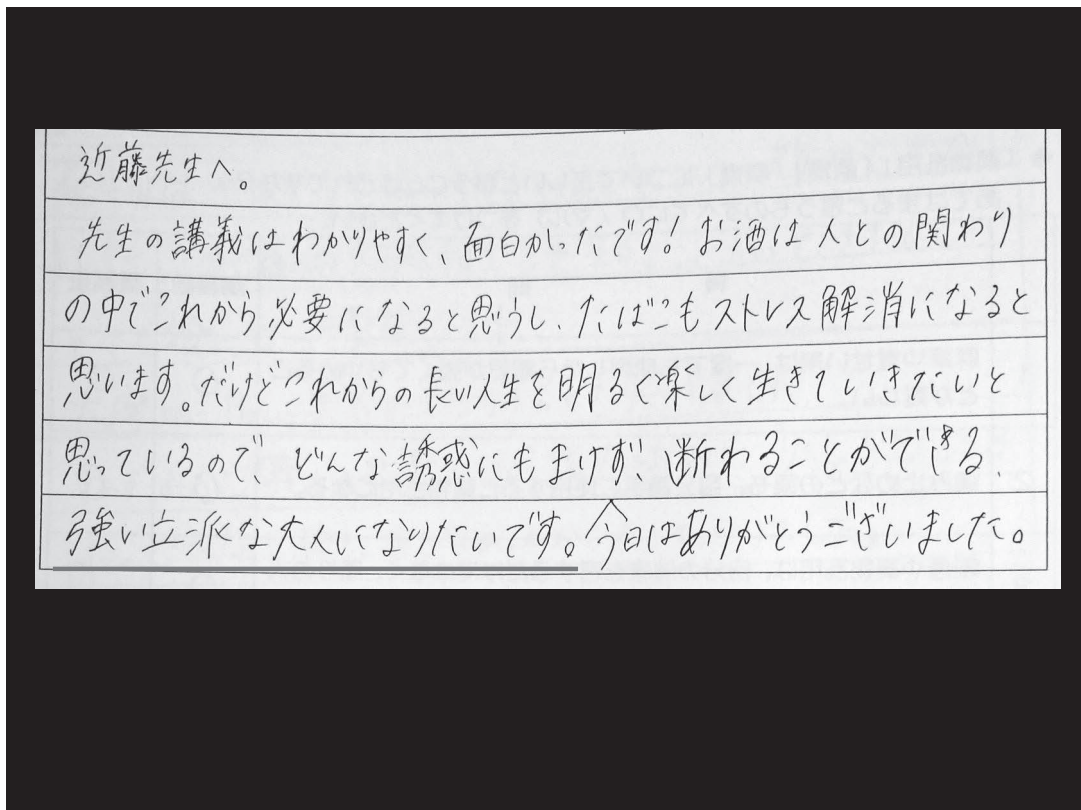 近藤先生へ。
先生の講義はわかりやすく、面白かったです!お酒は人との関わり
の中でこれから必要になると思うし、たばこもストレス解消になると
思います。だけどこれからの長い人生を明るく楽しく生きていきたいと
思っているので、どんな誘惑にもまけず、断わることができる、
強い立派な大人になりたいです。今日はありがとうございました。